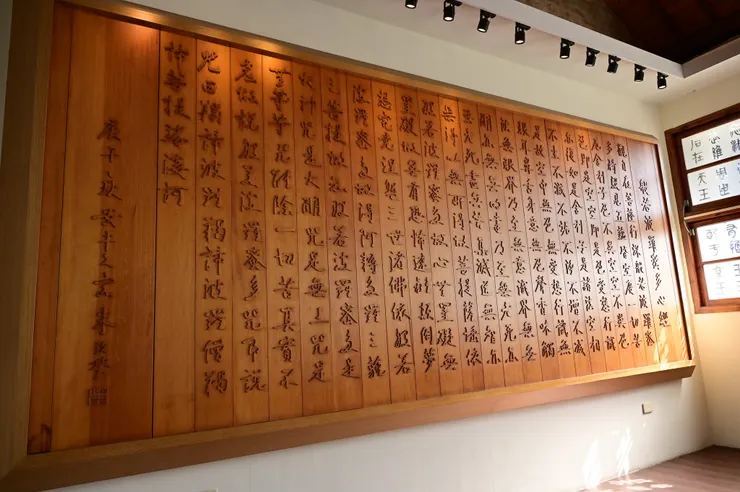 般若波羅蜜多心經
觀自在菩薩行深般若波羅蜜
多時照見五蘊皆空度一切苦
厄舍利子色不異空空不異色
色即是空空即是色受想行識
亦復如是舍利子是諸法空相
不生不滅不垢不淨不增不減
是故空中無色無受想行識無
眼耳鼻舌身意無色聲香味觸
法無眼界乃至無意識界無無
明亦無無明盡乃至無老死亦
無老死盡無苦集滅道無智亦
無得以無所得故菩提薩埵依
般若波羅蜜多故心無罣礙無
罣礙故無有恐怖遠離顛倒夢
想究竟涅槃三世諸佛依般若
波羅蜜多故得阿耨多羅三藐
三菩提故知般若波羅蜜多是
大神咒是大明咒是無上咒是
無等等咒能除一切苦真實不
虛故說般若波羅蜜多咒即說
咒曰揭諦波羅揭諦波羅僧揭
諦菩提薩婆訶
庚子秋安平